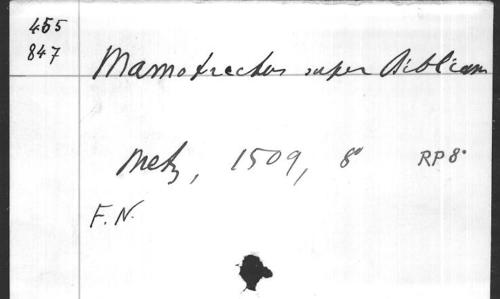 455
847
Mamotrectus super Bibliam
Metz, 1509, 8° RP 8°
F. N.